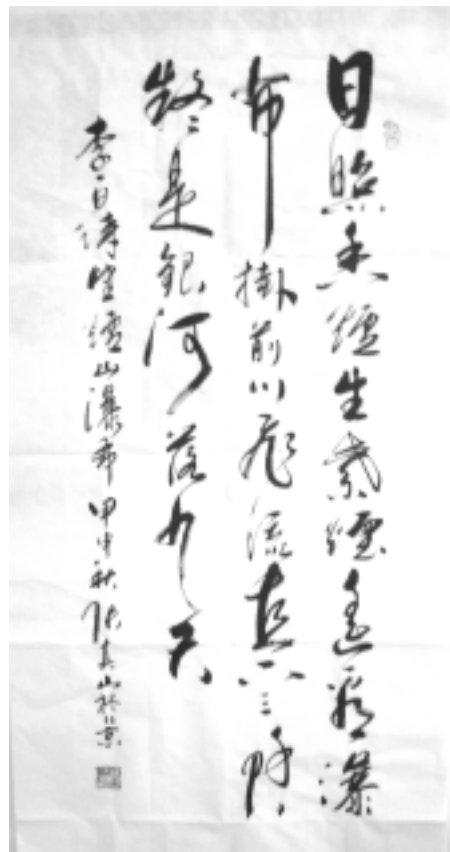 日照香爐生紫煙遙看瀑
布掛前川飛流直下三千尺
疑是銀河落九天
李白詩望爐山瀑布 甲申秋 山於京